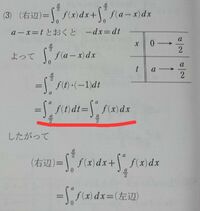 (3) (右辺) = ∫₀^{a/2} f(x)dx + ∫₀^{a/2} f(a−x)dx
a−x=t とおくと −dx=dt
x 0 → a/2
t a → a/2
よって ∫₀^{a/2} f(a−x)dx
= ∫ₐ^{a/2} f(t)·(−1)dt
= ∫_{a/2}^{a} f(t)dt = ∫_{a/2}^{a} f(x)dx
したがって
(右辺) = ∫₀^{a/2} f(x)dx + ∫_{a/2}^{a} f(x)dx
= ∫₀^{a} f(x)dx = (左辺)